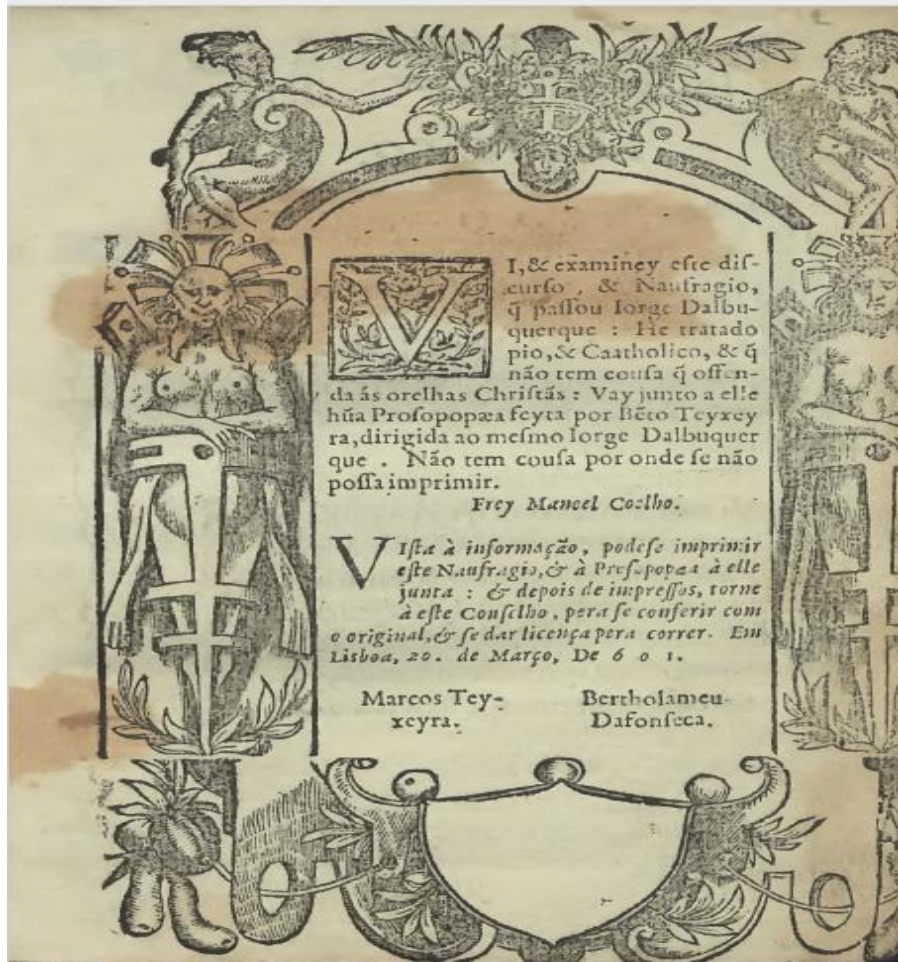 VI, & examiney eſte diſ-
curſo, & Naufragio,
q̃ paſſou Iorge Dalbu-
querque : He tratado
pio, & Caatholico, & q̃
não tem couſa q̃ offen-
da ás orelhas Chriſtãs : Vay junto a elle
hũa Proſopopæa feyta por Bẽto Teyxey
ra, dirigida ao meſmo Iorge Dalbuquer
que . Não tem couſa por onde ſe não
poſſa imprimir.
Frey Manoel Coelho.
VIſta à informação, podeſe imprimir
eſte Naufragio, & à Proſopopæa à elle
junta : & depois de impreſſos, torne
à eſte Conſelho, pera ſe conferir com
o original, & ſe dar licença pera correr. Em
Lisboa, 20. de Março, De 6 0 1.
Marcos Tey-
xeyra.
Bertholameu
Dafonſeca.